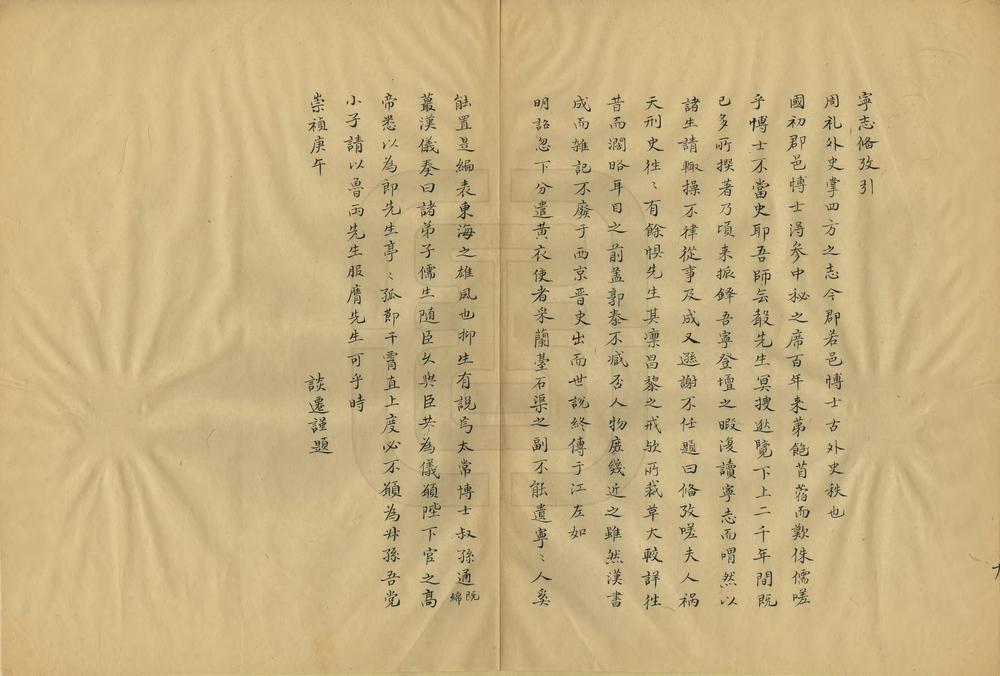 寧志俻攷引
周礼外史掌四方之志今郡若邑愽士古外史秩也
國初郡邑愽士得參中秘之席百年来苐飽苜蓿而歎侏儒嗟
乎愽士不當史耶吾師㑹嵗先生冥搜逖覽下上二千年間既
已多所撰著乃頃来振鐸吾寧登壇之暇復讀寧志而喟然以
諸生請輙操不律從事及成又遜謝不任題曰俻攷嗟夫人祸
天刑史徃〻有餘惧先生其凛昌黎之戒欤所裁草大較詳徃
昔而濶略耳目之前盖郭泰不臧否人物庻幾近之雖然漢書
成而雜記不廢于西京晋史出而世說終傳于江左如
明詔忽下分遣黃衣使者采蘭臺石渠之副不能遺寧〻人奚
能置是編表東海之雄風也抑生有說焉太常博士叔孫通既綿
蕞漢儀奏曰諸弟子儒生随臣久與臣共為儀願陛下官之髙
帝悉以為郎先生亭〻孤節千霄直上度必不願為叔孫吾党
小子請以魯兩先生服膺先生可乎時
崇禎庚午
談遷謹題